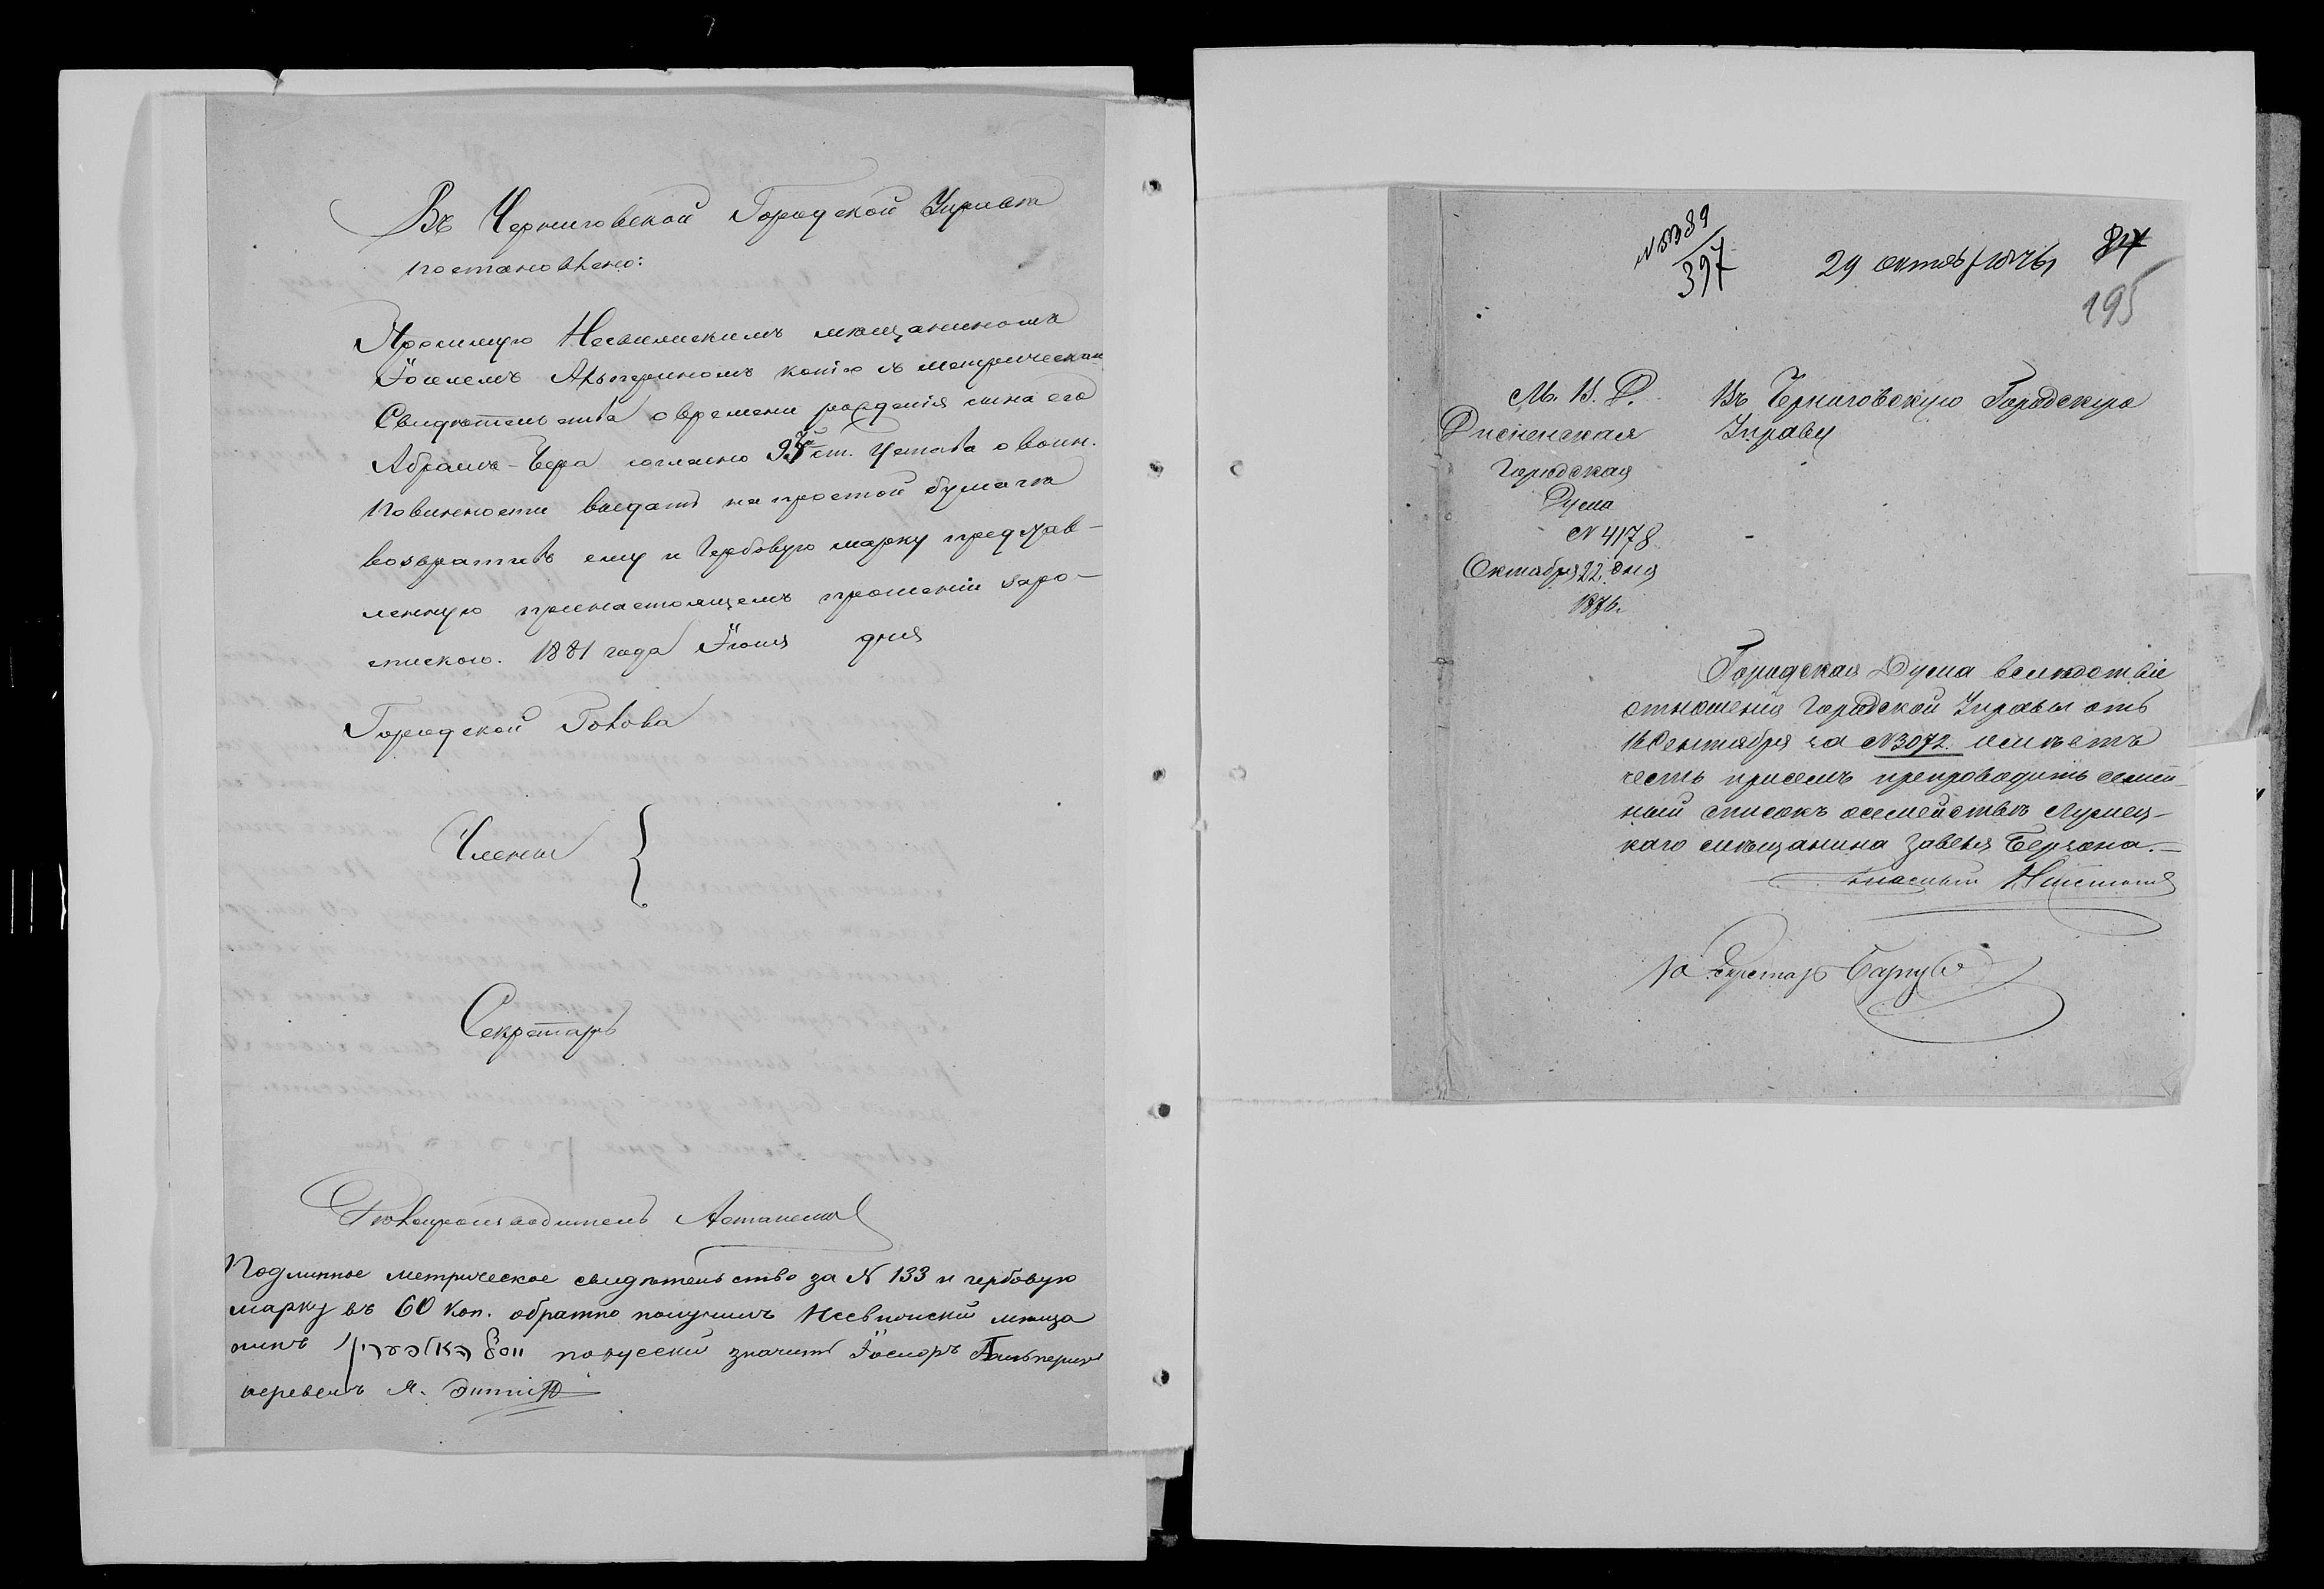 Въ Черниговской Городской Управѣ
постановлено:
Просимую Несвижскимъ мѣщаниномъ
Іоселемъ Альперинымъ копію съ метрическаго
Свидѣтельства о времени рожденія сына его
Абрамъ-Бера согласно 93 ст. Устава о воин.
Повинности выдать на простой бумагѣ
возвративъ ему и гербовую марку представ-
ленную при настоящемъ прошеніи подъ ро-
спискою. 1881 года Іюня дня
Городской Голова
Члены
Секретарь
Дѣлопроизводитель
Подлинное метрическое свидѣтельство за № 133 и гербовую
марку въ 60 коп. обратно получилъ Несвижскій мѣща
нинъ יוסל האלפערין по русски значитъ Іосель Гальперинъ
перевелъ Я.
№ 5389
397
29 октяб. 1876 г.
84
195
М. В. Д. Въ Черниговскую Городскую
Дисненская Управу
Городская
Дума
№ 4178
Октября 22 дня
1876.
Городская Дума вслѣдствіе
отношенія Городской Управы отъ
16 Сентября за № 3072 имѣетъ
честь присемъ препроводить семей-
ный списокъ о семействѣ Лужец-
каго мѣщанина Завеля Берхона.
Гласный
За Секретаръ